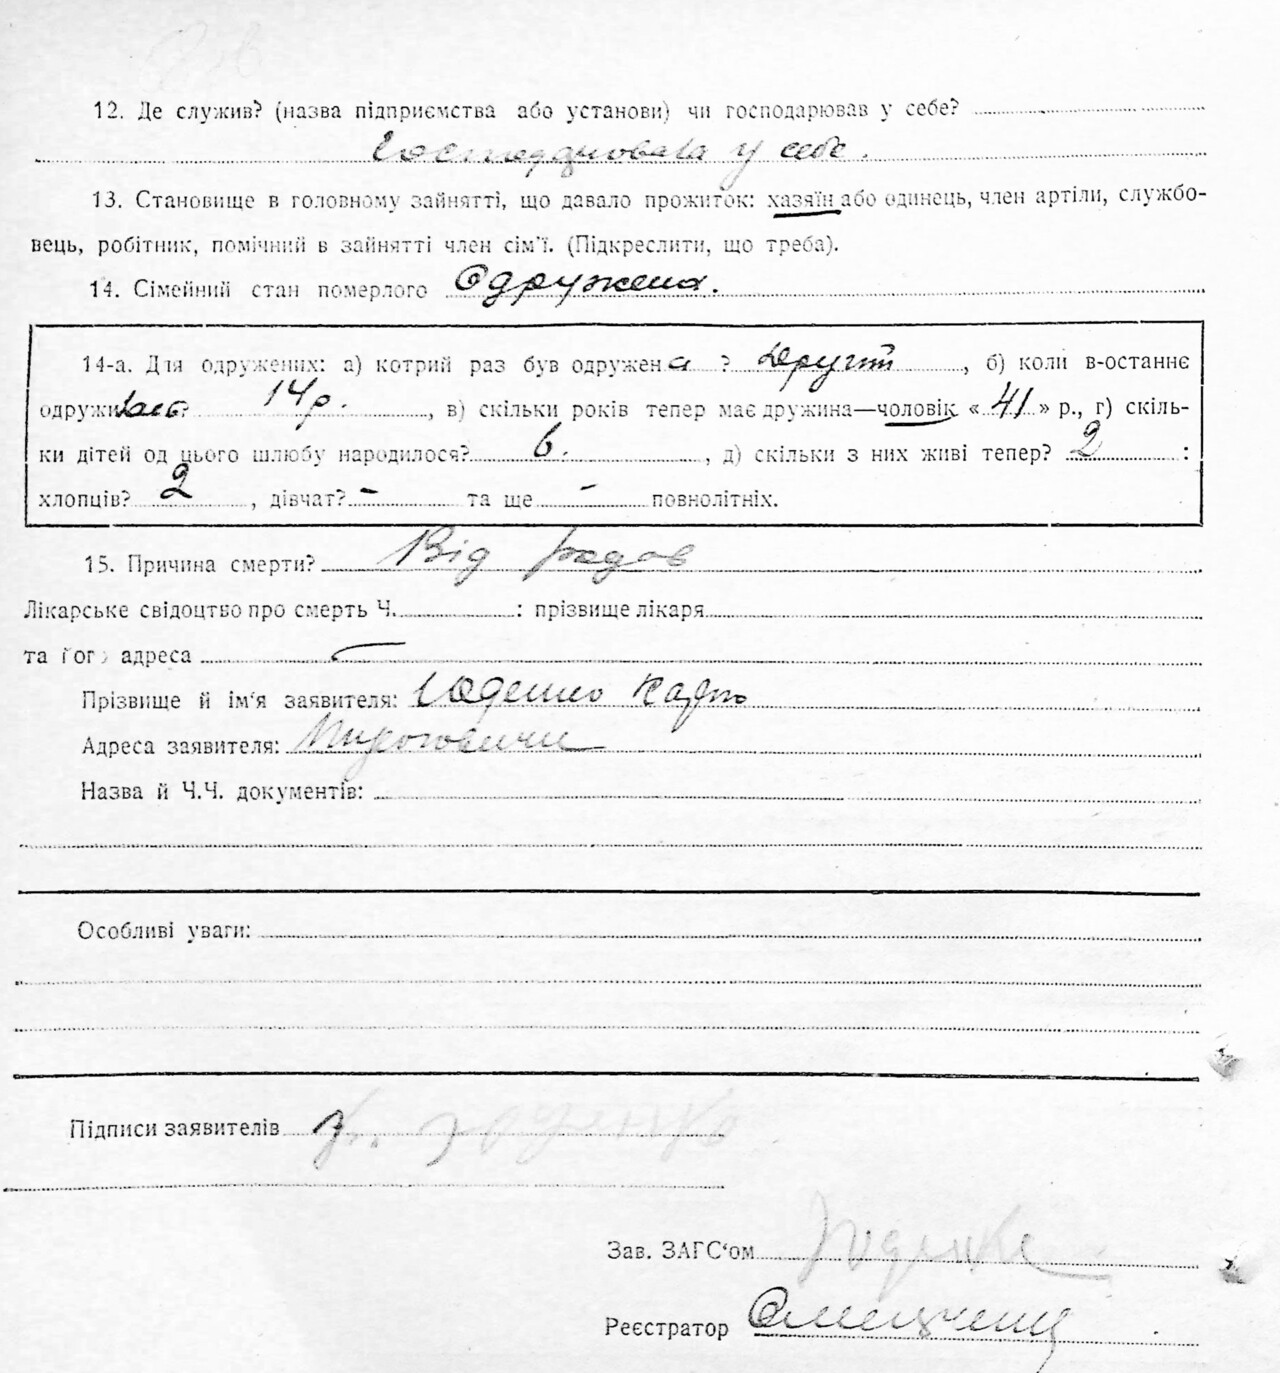 12. Де служив? (назва підприємства або установи) чи господарював у себе?
Господарювала у себе.
13. Становище в головному зайнятті, що давало прожиток: хазяїн або одинець, член артіли, службо-
вець, робітник, помічний в зайнятті член сім'ї. (Підкреслити, що треба).
14. Сімейний стан померлого Одружена.
14-а. Для одружених: а) котрий раз був одружена ? другий, б) коли в-останнє
одружилась? 14 р., в) скільки років тепер має дружина—чоловік «41» р., г) скіль-
ки дітей од цього шлюбу народилося? 6., д) скільки з них живі тепер? 2 :
хлопців? 2, дівчат? - та ще - повнолітніх.
15. Причина смерти? Від родов
Лікарське свідоцтво про смерть Ч. : прізвище лікаря
та його адреса –
Прізвище й ім'я заявителя: Юденко
Адреса заявителя: Пироговичи
Назва й Ч.Ч. документів:
Особливі уваги:
Підписи заявителів К. Юденко
Зав. ЗАГС'ом Юденко
Реєстратор